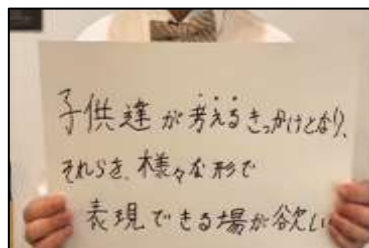 子供達が考えるきっかけとなり、
それらを、様々な形で
表現できる場が欲しい